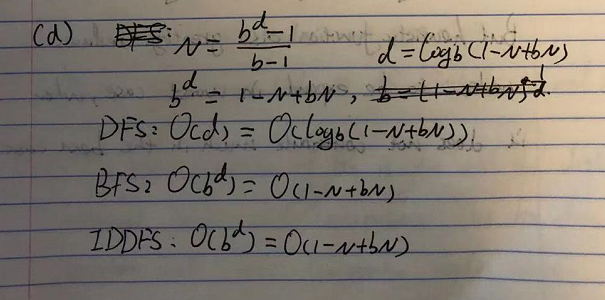 (d) N = (b^d - 1)/(b - 1) d = log_b(1-N+bN)
b^d = 1-N+bN,
DFS: O(d) = O(log_b(1-N+bN))
BFS: O(b^d) = O(1-N+bN)
IDDFS: O(b^d) = O(1-N+bN)